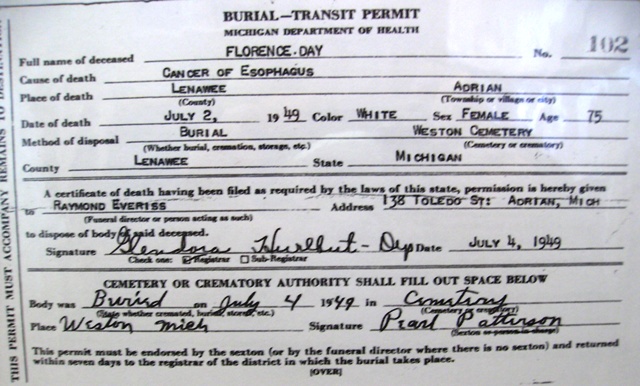 BURIAL—TRANSIT PERMIT
MICHIGAN DEPARTMENT OF HEALTH
Full name of deceased FLORENCE DAY No. 102
Cause of death CANCER OF ESOPHAGUS
Place of death LENAWEE ADRIAN
(County) (Township or village or city)
Date of death JULY 2, 1949 Color WHITE Sex FEMALE Age 75
Method of disposal BURIAL WESTON CEMETERY
(Whether burial, cremation, storage, etc.) (Cemetery or crematory)
County LENAWEE State MICHIGAN
A certificate of death having been filed as required by the laws of this state, permission is hereby given
to RAYMOND EVERISS Address 138 TOLEDO ST: ADRIAN, MICH
(Funeral director or person acting as such)
to dispose of body of said deceased.
Signature Glendora Hurlbut - Dep Date JULY 4, 1949
Check one: Registrar Sub-Registrar
CEMETERY OR CREMATORY AUTHORITY SHALL FILL OUT SPACE BELOW
Body was Buried on July 4 1949 in Cemetery
(State whether cremated, buried, stored, etc.) (Cemetery or crematory)
Place Weston Mich Signature Pearl Patterson
(Sexton or person in charge)
This permit must be endorsed by the sexton (or by the funeral director where there is no sexton) and returned
within seven days to the registrar of the district in which the burial takes place.
(OVER)
THIS PERMIT MUST ACCOMPANY REMAINS TO